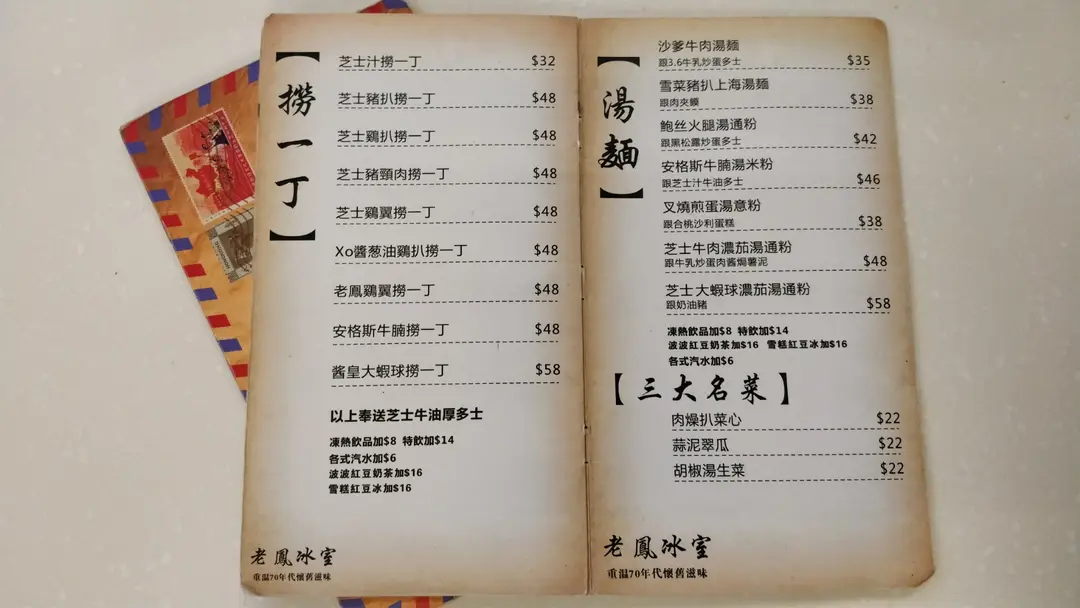 【撈一丁】
芝士汁撈一丁 $32
芝士豬扒撈一丁 $48
芝士鷄扒撈一丁 $48
芝士豬頸肉撈一丁 $48
芝士鷄翼撈一丁 $48
Xo醬葱油鷄扒撈一丁 $48
老鳳鷄翼撈一丁 $48
安格斯牛腩撈一丁 $48
酱皇大蝦球撈一丁 $58
以上奉送芝士牛油厚多士
凍熱飲品加$8 特飲加$14
各式汽水加$6
波波紅豆奶茶加$16
雪糕紅豆冰加$16
老鳳冰室
重温70年代懷舊滋味
【湯麵】
沙爹牛肉湯麵
跟3.6牛乳炒蛋多士 $35
雪菜豬扒上海湯麵
跟肉夾饃 $38
鮑丝火腿湯通粉
跟黑松露炒蛋多士 $42
安格斯牛腩湯米粉
跟芝士汁牛油多士 $46
叉燒煎蛋湯意粉
跟合桃沙利蛋糕 $38
芝士牛肉濃茄湯通粉
跟牛乳炒蛋肉酱焗薯泥 $48
芝士大蝦球濃茄湯通粉
跟奶油豬 $58
凍熱飲品加$8 特飲加$14
波波紅豆奶茶加$16 雪糕紅豆冰加$16
各式汽水加$6
【三大名菜】
肉燥扒菜心 $22
蒜泥翠瓜 $22
胡椒湯生菜 $22
老鳳冰室
重温70年代懷舊滋味